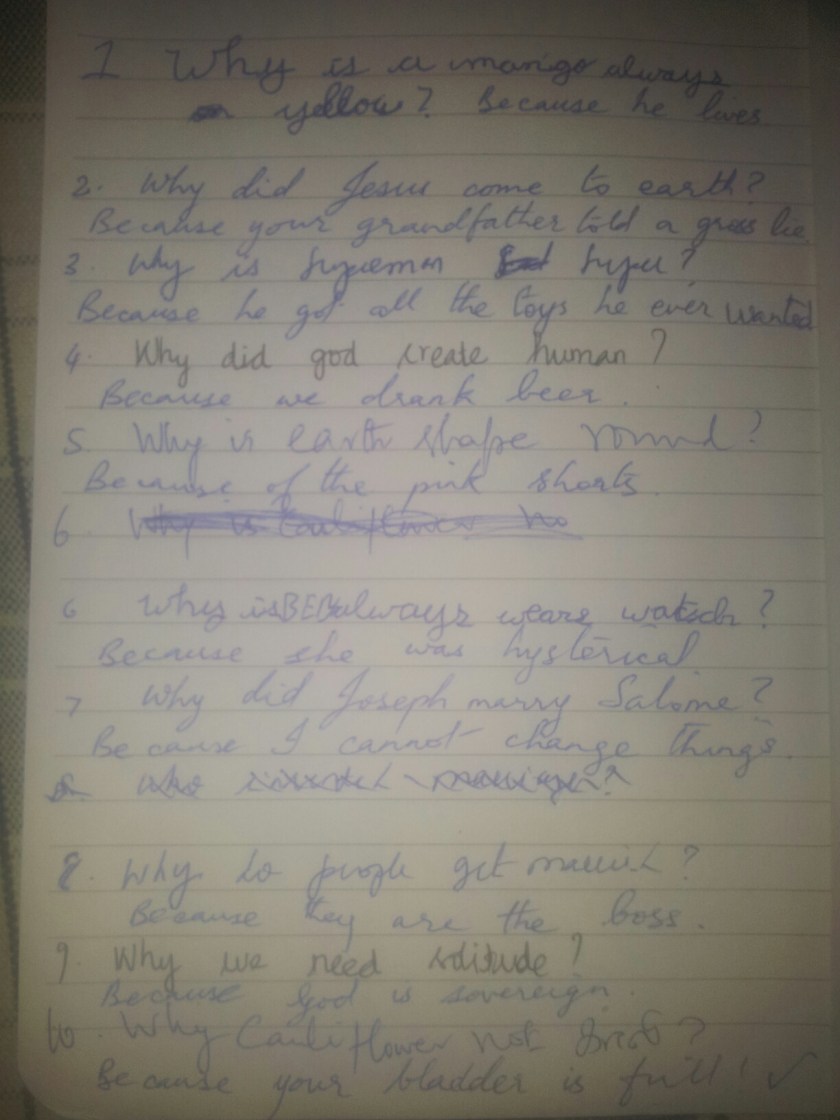 1 Why is a mango always
yellow? Because he lives
2. Why did Jesus come to earth?
Because your grandfather told a gross lie
3. Why is
Because he got all the toys he ever wanted
4. Why did god create human?
Because we drank beer.
5. Why is earth shape round?
Because of the pink shorts.
6.
6 Why is always wears watch?
Because she was hysterical
7 Why did Joseph marry Salome?
Because I cannot change things.
8. Why do people get married?
Because they are the boss.
9. Why we need solitude?
Because God is sovereign.
10. Why Cauliflower not
Because your bladder is full!